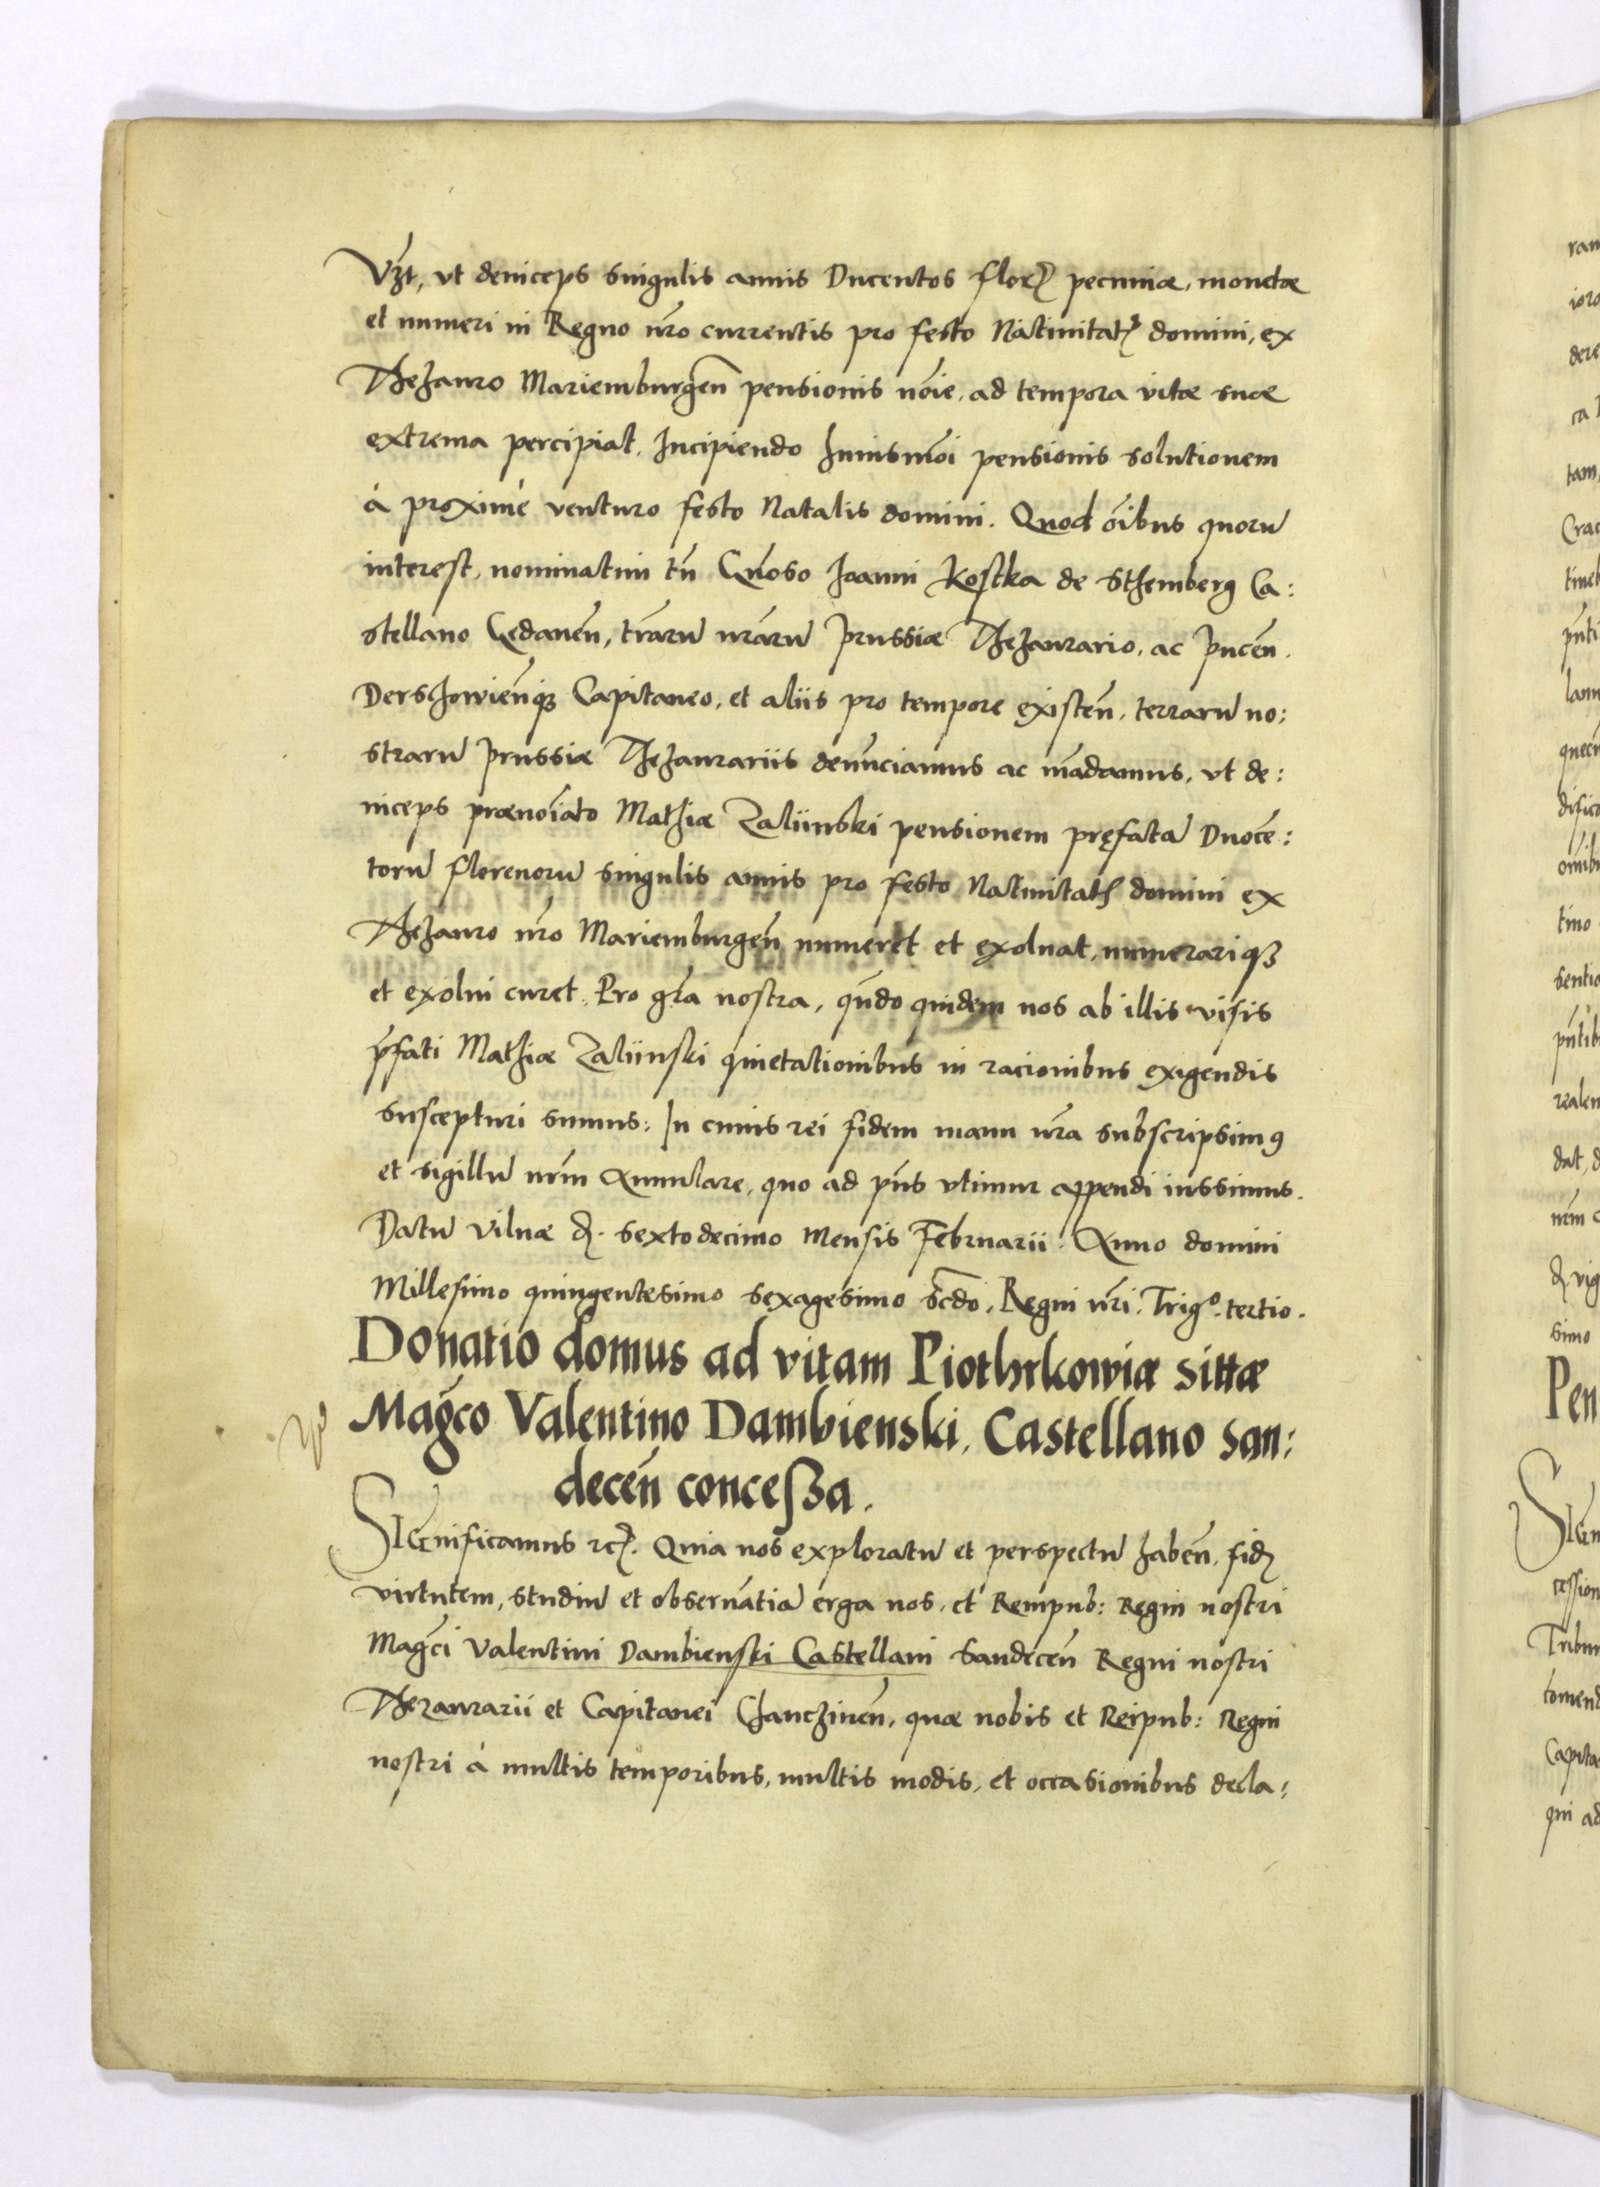 Vzt, vt deinceps singulis annis Ducentos flor. pecuniæ, monetæ
et numeri in Regno nro currentis pro festo Natiuitat. domini, ex
Thezauro Mariemburgen pensionis noie, ad tempora vitæ suæ
extrema percipiat. Incipiendo huiusmoi pensionis solutionem
à proximè venturo festo Natalis domini. Quod oibus quoru
interest, nominatim tn Gnoso Joanni Kostka de Sthemberg Ca:
stellano Gedanen, trraru nraru Prussiæ Thezaurario, ac Pucen.
Derschowienq3 Capitaneo, et aliis pro tempore existen, terraru no:
straru Prussiæ Thezaurariis denunciamus ac madamus, vt de:
inceps prænoiato Mathiæ Zaliinski pensionem pręfata Duoce:
toru florenoru singulis annis pro festo Natiuitat. domini ex
Thezauro nro Mariemburgen numeret et exoluat, numerariq3
et exolui curet. Pro gra nostra, qndo quidem nos ab illis visis
pfati Mathiæ Zaliinski quietationibus in racionibus exigendis
suscepturi sumus: In cuius rei fidem manu nra subscripsim9
et sigillu nrm Annulare, quo ad pns vtimur appendi iussimus.
Datu Vilnæ d. sextodecimo Mensis Februarii. Anno domini
Millesimo quingentesimo sexagesimo scdo, Regni nri. Trigº. tertio.
Donatio domus ad vitam Piothrkowiæ sittæ
Magco Valentino Dambienski, Castellano San:
decen concessa.
SIGnificamus etc. Quia nos exploratu et perspectu haben, fid.
virtutem, studiu et obseruatia erga nos, et Rempub: Regni nostri
Magci Valentini Dambienski Castellani Sandecen Regni nostri
Thezaurarii et Capitanei Chanczinen, quæ nobis et Reipub: Regni
nostri à multis temporibus, multis modis, et occasionibus decla: